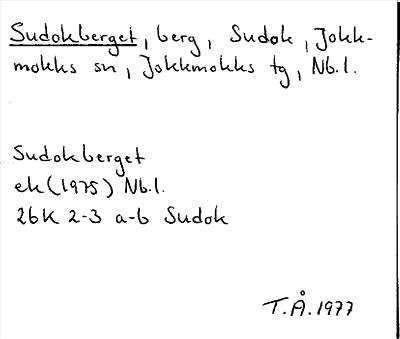 Sudokberget, berg, Sudok, Jokk-
mokks sn, Jokkmokks tg, Nb.l.
Sudokberget
ek (1975) Nb.l.
26K 2-3 a-b Sudok
T.Å. 1977